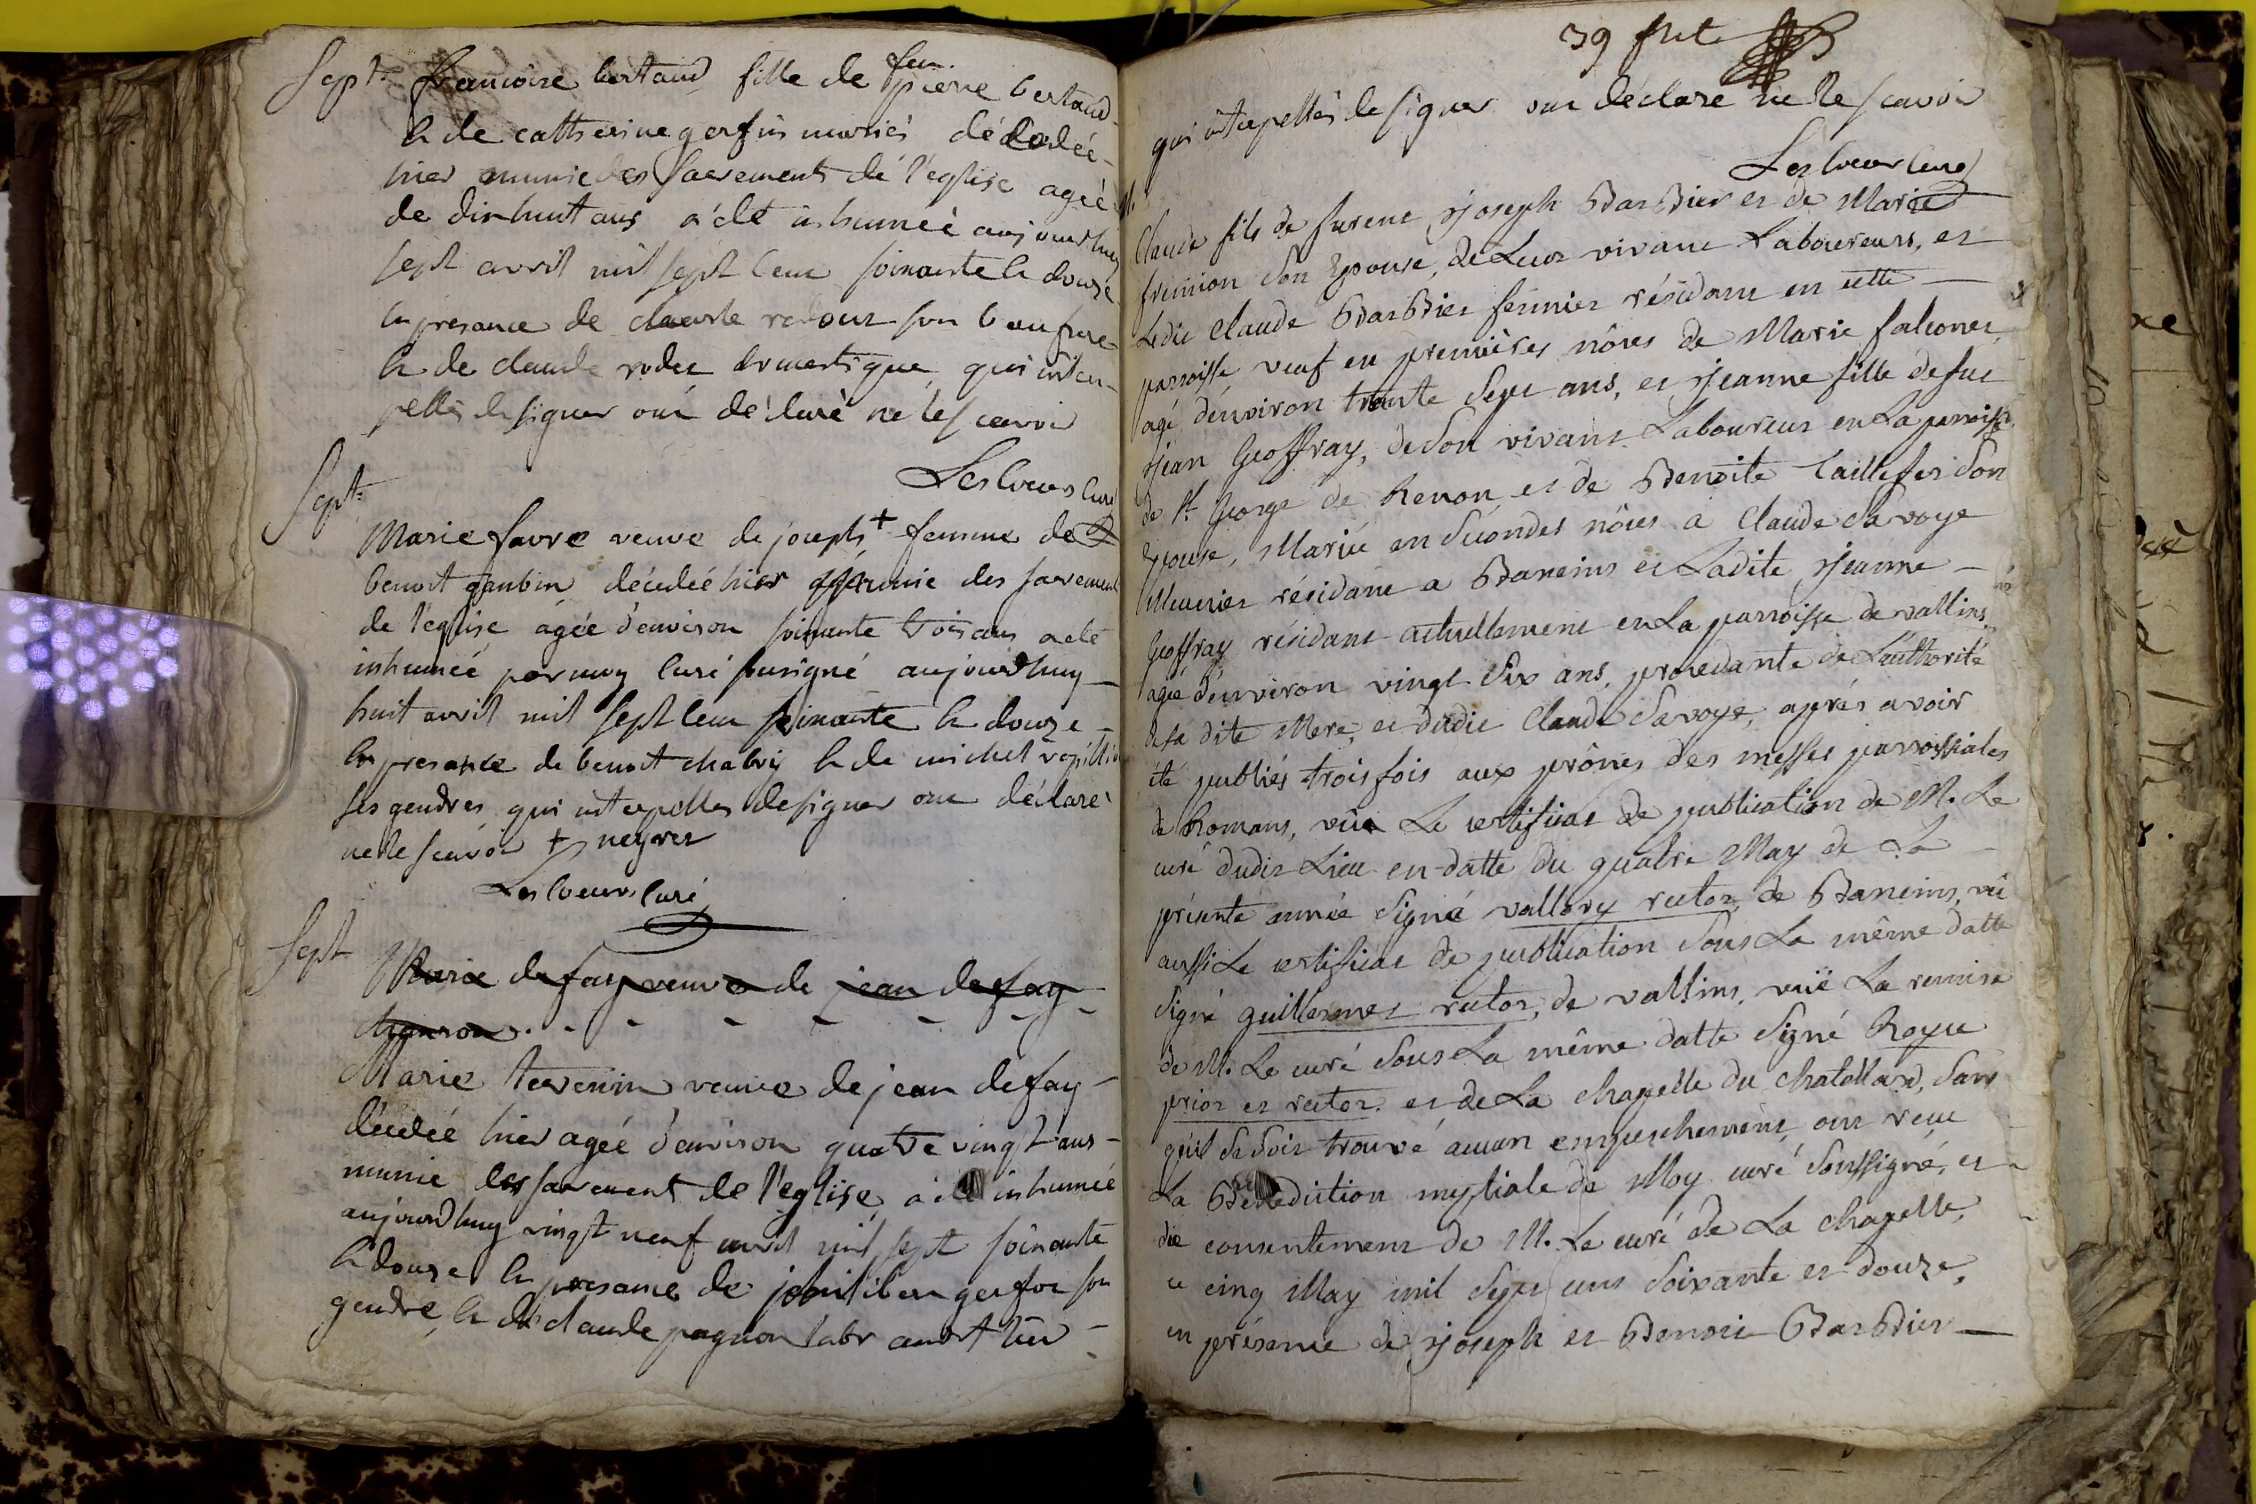 Sept. francoise bertaud fille de feu pierre bertaud
& de catherine gerfin mariés décedée
hier munie des sacrements de l'eglise agée
de dixhuit ans a été inhumée aujourdhuy
sept avril mil sept cens soixante & douze
en presance de claude son beaufrere
& de claude rodet domestique qui inter-
pellés de signer ont déclaré ne le scavoir
Lescoeur curé
Sept.
Marie favre veuve de joseph + femme de
benoit gaubin décedée hier munie des sacrement
de l'eglise agée d'environ soixante trois ans a eté
inhumée par moy curé sousigné aujourdhuy
huit avril mil sept cens soixante & douze
en presance de benoit chabry & de michel
ses gendres qui interpellés de signer ont déclaré
ne le scavoir + neyret
Lescoeur curé
Sept
Marie defay veuve de jean defay

Marie tevenin veuve de jean defay
décédée hier agée d'environ quatre vingt ans
munie des sacrement de l'eglise a été inhumée
aujourdhuy vingt neuf avril mil sept soixante
& douze en presance de gerfoe son
gendre & de claude pagnon
39 fnt
qui interpellés de signer ont déclaré ne le scavoir
Lescoeur curé
M.
Claude fils de furent Joseph Barbier et de Marie
son Epouse, de Leur vivant Laboureurs, et
Ledit Claude Barbier fermier résidant en cette
parroisse veuf en premières nôces de Marie falconet,
agé d'environ trente Sept ans, et Jeanne fille de fut
Jean Geoffray, de Son vivant Laboureur en La parroisse
de St. George de Renon et de Benoite Taillefer Son
Epouse, Mariée en Sécondes nôces a Claude Savoye
Meunier résidant a Baneins et Ladite Jeanne
Geoffray résidant actuellement en La parroisse de vallins,
agée d'environ vingt Six ans, procedante de L'authorité
de Sa dite Mere, et dudit Claude Savoye, aprés avoir
été publiés trois fois aux prônes des messes parroissiales
de Romans, vûe Le certificat de publication de M. Le
curé dudit Lieu en datte du quatre May de La
présente année Signé vallory rector, de Baneins, vû
aussi Le certificat de publication Sous La même datte
Signé guillermet rector, de vallins, vuë La remise
de M. Le curé Sous La même datte Signé Royer
prior et rector. et de La chapelle du chatellard, Sans
quil Se Soit trouvé aucun empeschement ont reçu
La Bénédiction nuptiale de Moy curé Soussigné, et
du consentement de M. Le curé de La chapelle,
ce cinq May mil Sept cens Soixante et douze,
en présence de Joseph et Benoit Barbier